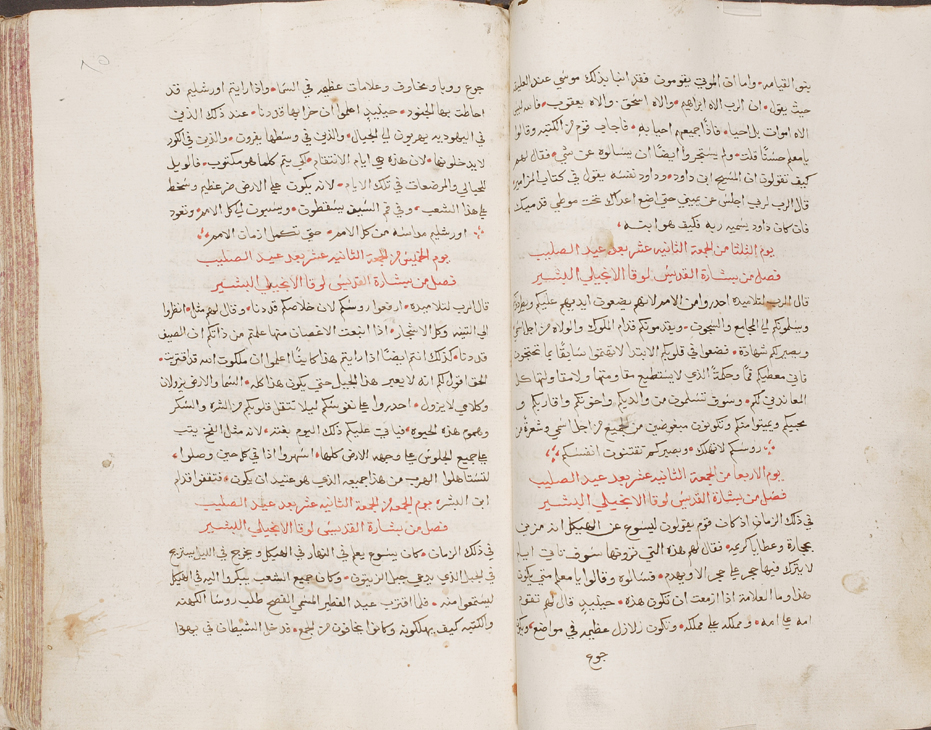 بنو القيامه • واما ان الموتي يقومون فقد انبا بذلك موسي عند العليقه
حيث يقول • ان الرب الاه ابراهيم • والاه اسحق • والاه يعقوب • فالله ليس
الاه اموات بل احيا • فاذًا جميعهم احيا به • فاجاب قوم من الكتبه وقالوا
يا معلم حسنًا قلت • ولم يستجروا ايضًا ان يسالوه عن شي • فقال لهم
كيف تقولون ان المسيح ابن داود • وداود نفسه يقول في كتاب المزامير
قال الرب لربي اجلس عن يميني حتي اضع اعداك تحت موطي قدميك
فان كان داود يسميه ربه فكيف هو ابنه •
يوم الثلثا من الجمعة الثانيه عشر بعد عيد الصليب
فصل من بشارة القديس لوقا الانجيلي البشير •
قال الرب لتلاميذه احدروا من الامم لانهم يضعون ايديهم عليكم ويطردونكم
ويسلمونكم الي المجامع والسجون • ويقدمونكم قدام الملوك والولاه من اجل اسمي
ويصيركم شهادة • فضعوا في قلوبكم الابتدا لا تهتموا سابقًا بما تحتجون
فاني معطيكم فمًا وحكمةً الذي لا يستطيع مقاومتها ولا مقاولتها كل
المعاندي لكم • وسوف تسلمون من والديكم واخوتكم واقاربكم و
محبيكم ويميتوا منكم وتكونون مبغوضين من الجميع من اجل اسمي وشعرة من
روسكم لا تهلك • وبصبركم تقتنون انفسكم
يوم الاربعا من الجمعة الثانيه عشر بعد عيد الصليب
فصل من بشارة القديس لوقا الانجيلي البشير
في ذلك الزمان اذ كان قوم يقولون ليسوع عن الهيكل انه مزين
بحجارة وعطايا كريمه • فقال لهم هذه التي ترونها سوف تاتي ايام
لا يترك فيها حجر علي حجر الا ويهدم • فسالوه وقالوا يا معلم متي يكون
هذا وما العلامة اذا ازمعت ان تكون هذه • حينيدٍ قال لهم تقوم
امه علي امه • ومملكه علي مملكه • وتكون زلازل عظيمه في مواضع • ويكون
جوع
٨٥
جوع ووبا ومخاوف وعلامات عظيمه في السما • واذا رايتم اورشليم قد
احاطت بها الجنود • حينيدٍ اعلموا ان خرابها قد دنا • عند ذلك الذين
في اليهوديه يهربون الي الجبال • والذين في وسطها يفرون • والذين في الكور
لا يدخلونها • لان هذه هي ايام الانتقام • لكي يتم كلما هو مكتوب • فالويل
للحبالي والمرضعات في تلك الايام • لانه يكون علي الارض ضر عظيم وسخط
علي هذا الشعب • وفي فم السيف يسقطون • ويسبون الي كل الامم • وتعود
اورشليم مداسه من كل الامم • حتي تكمل ازمان الامم
يوم الخميس من الجمعة الثانيه عشر بعد عيد الصليب
فصل من بشارة القديس لوقا الانجيلي البشير
قال الرب لتلاميذه • ارفعوا روسكم لان خلاصكم قد دنا • وقال لهم مثلًا • انظروا
الي التينه وكل الاشجار • اذا اينعت الاغصان منها علمتم من ذاتكم ان الصيف
قد دنا • كذلك انتم ايضًا اذا رايتم هذا كاينًا اعلموا ان ملكوت الله قد اقتربت •
الحق اقول لكم انه لا يعبر هذا الجيل حتي يكون هذا كله • السما والارض يزولان
وكلامي لا يزول • احدروا علي نفوسكم ليلا تثقل قلوبكم من الشره والسكر
وهموم هذه الحيوه • فياتي عليكم ذلك اليوم بغتةً • لانه مثل الفخ يثب
علي جميع الجلوس علي وجهه الارض كلها • اسهروا اذًا في كل حين وصلوا •
لتستاهلوا الهرب من هذا جميعه الذي هو عتيد ان يكون • فتقفوا قدام
ابن البشر • يوم الجمعة من الجمعة الثانيه عشر بعد عيد الصليب
فصل من بشارة القديس لوقا الانجيلي البشير
في ذلك الزمان • كان يسوع يعلم في النهار في الهيكل ويخرج في الليل يستريح
في الجبل الذي يدعي جبل الزيتون • وكان جميع الشعب يبكروا اليه في الهيكل
ليسمعوا منه • فلما اقترب عيد الفطير المسمي الفصح طلب روسا الكهنه
والكتبه كيف يهلكونه وكانوا يخافون من الجمع • فدخل الشيطان في يهوذا